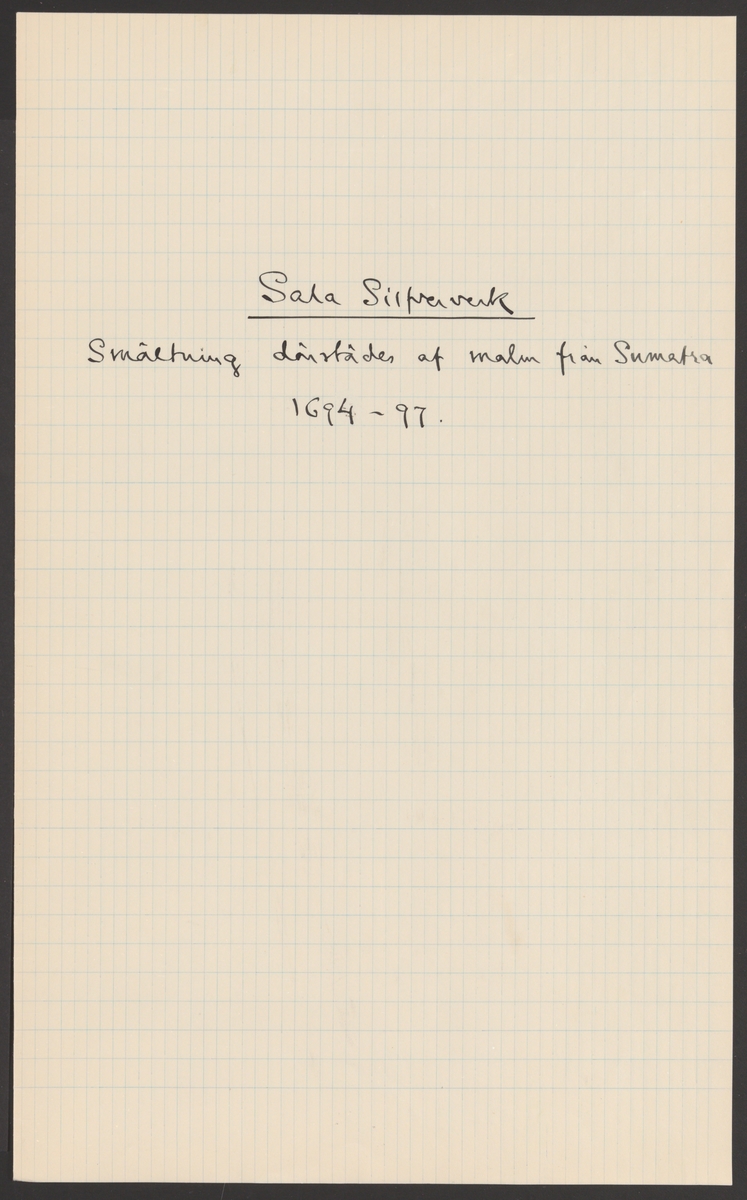 Sala Silfververk
Smältning därstädes af malm från Sumatra
1694-97.